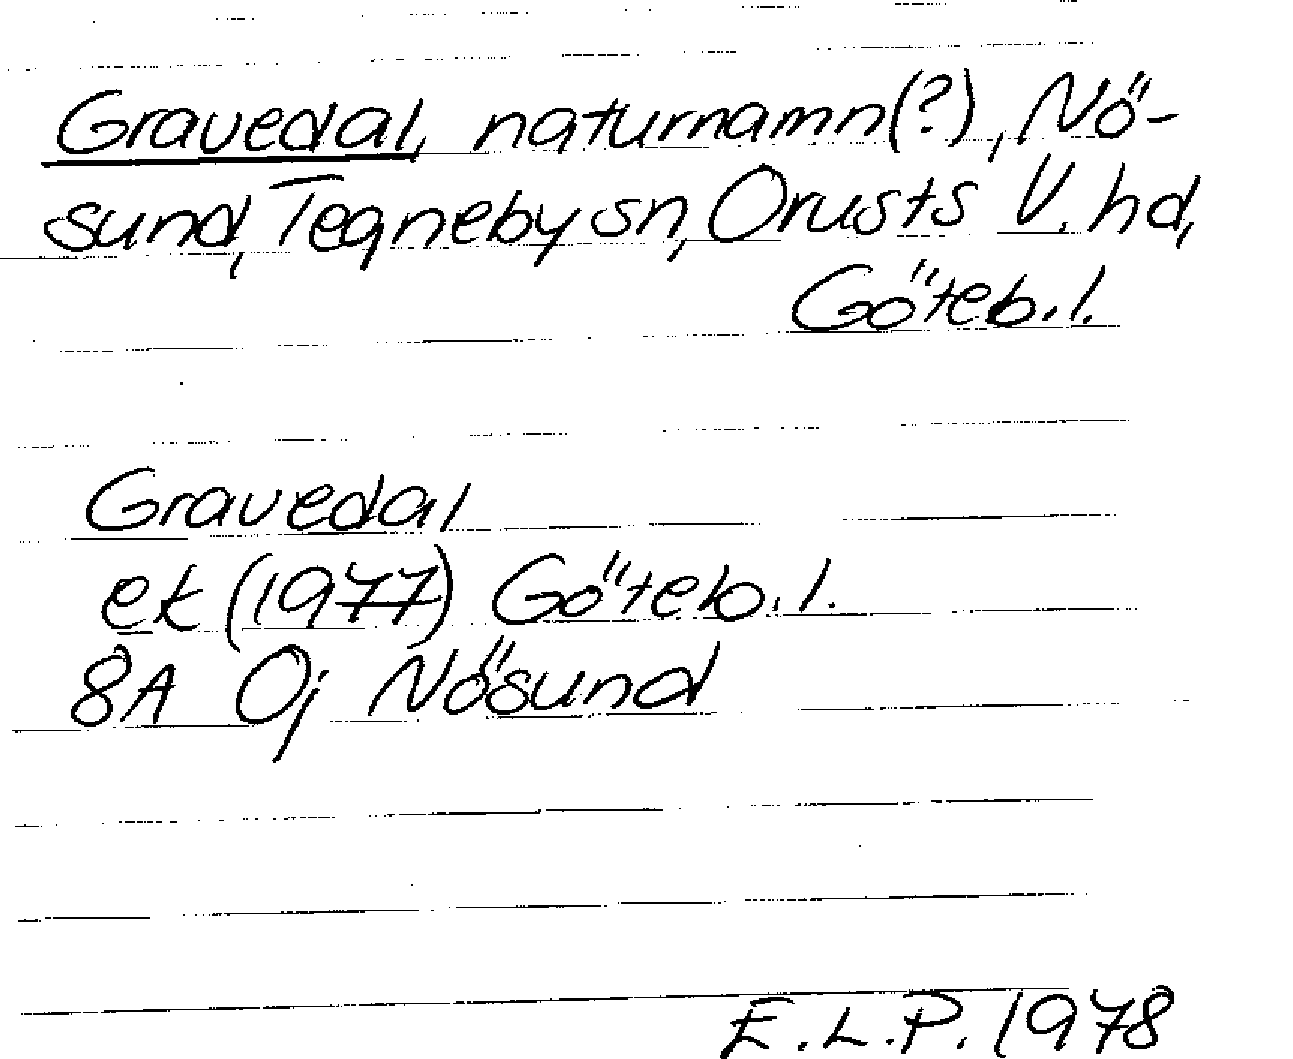 Gravedal, naturnamn(?), Nö-
sund, Tegneby sn, Orusts V. hd,
Göteb.l.
Gravedal
ek (1977) Göteb.l.
8A 0j Nösund
E.L.P. 1978